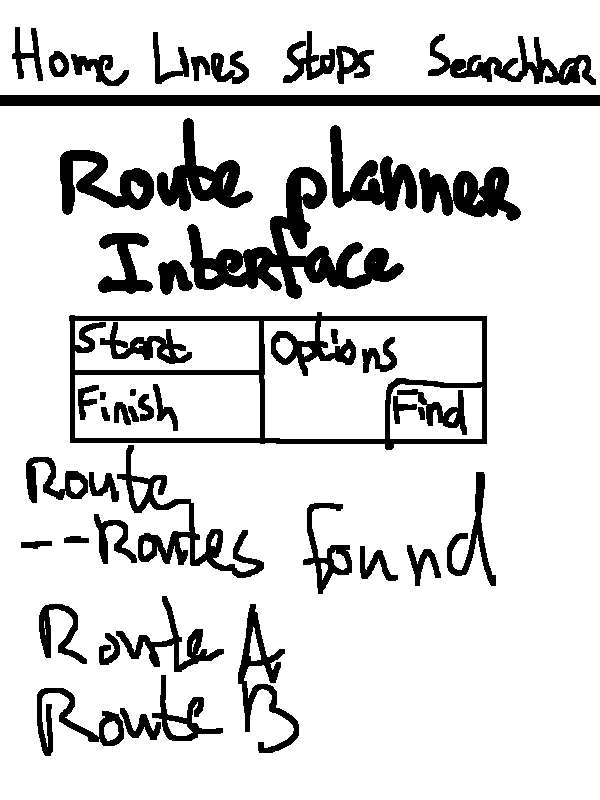 Home Lines Stops Searchbar
Route planner
Interface
Start Options
Finish Find
Route
--Routes found
Route A
Route B